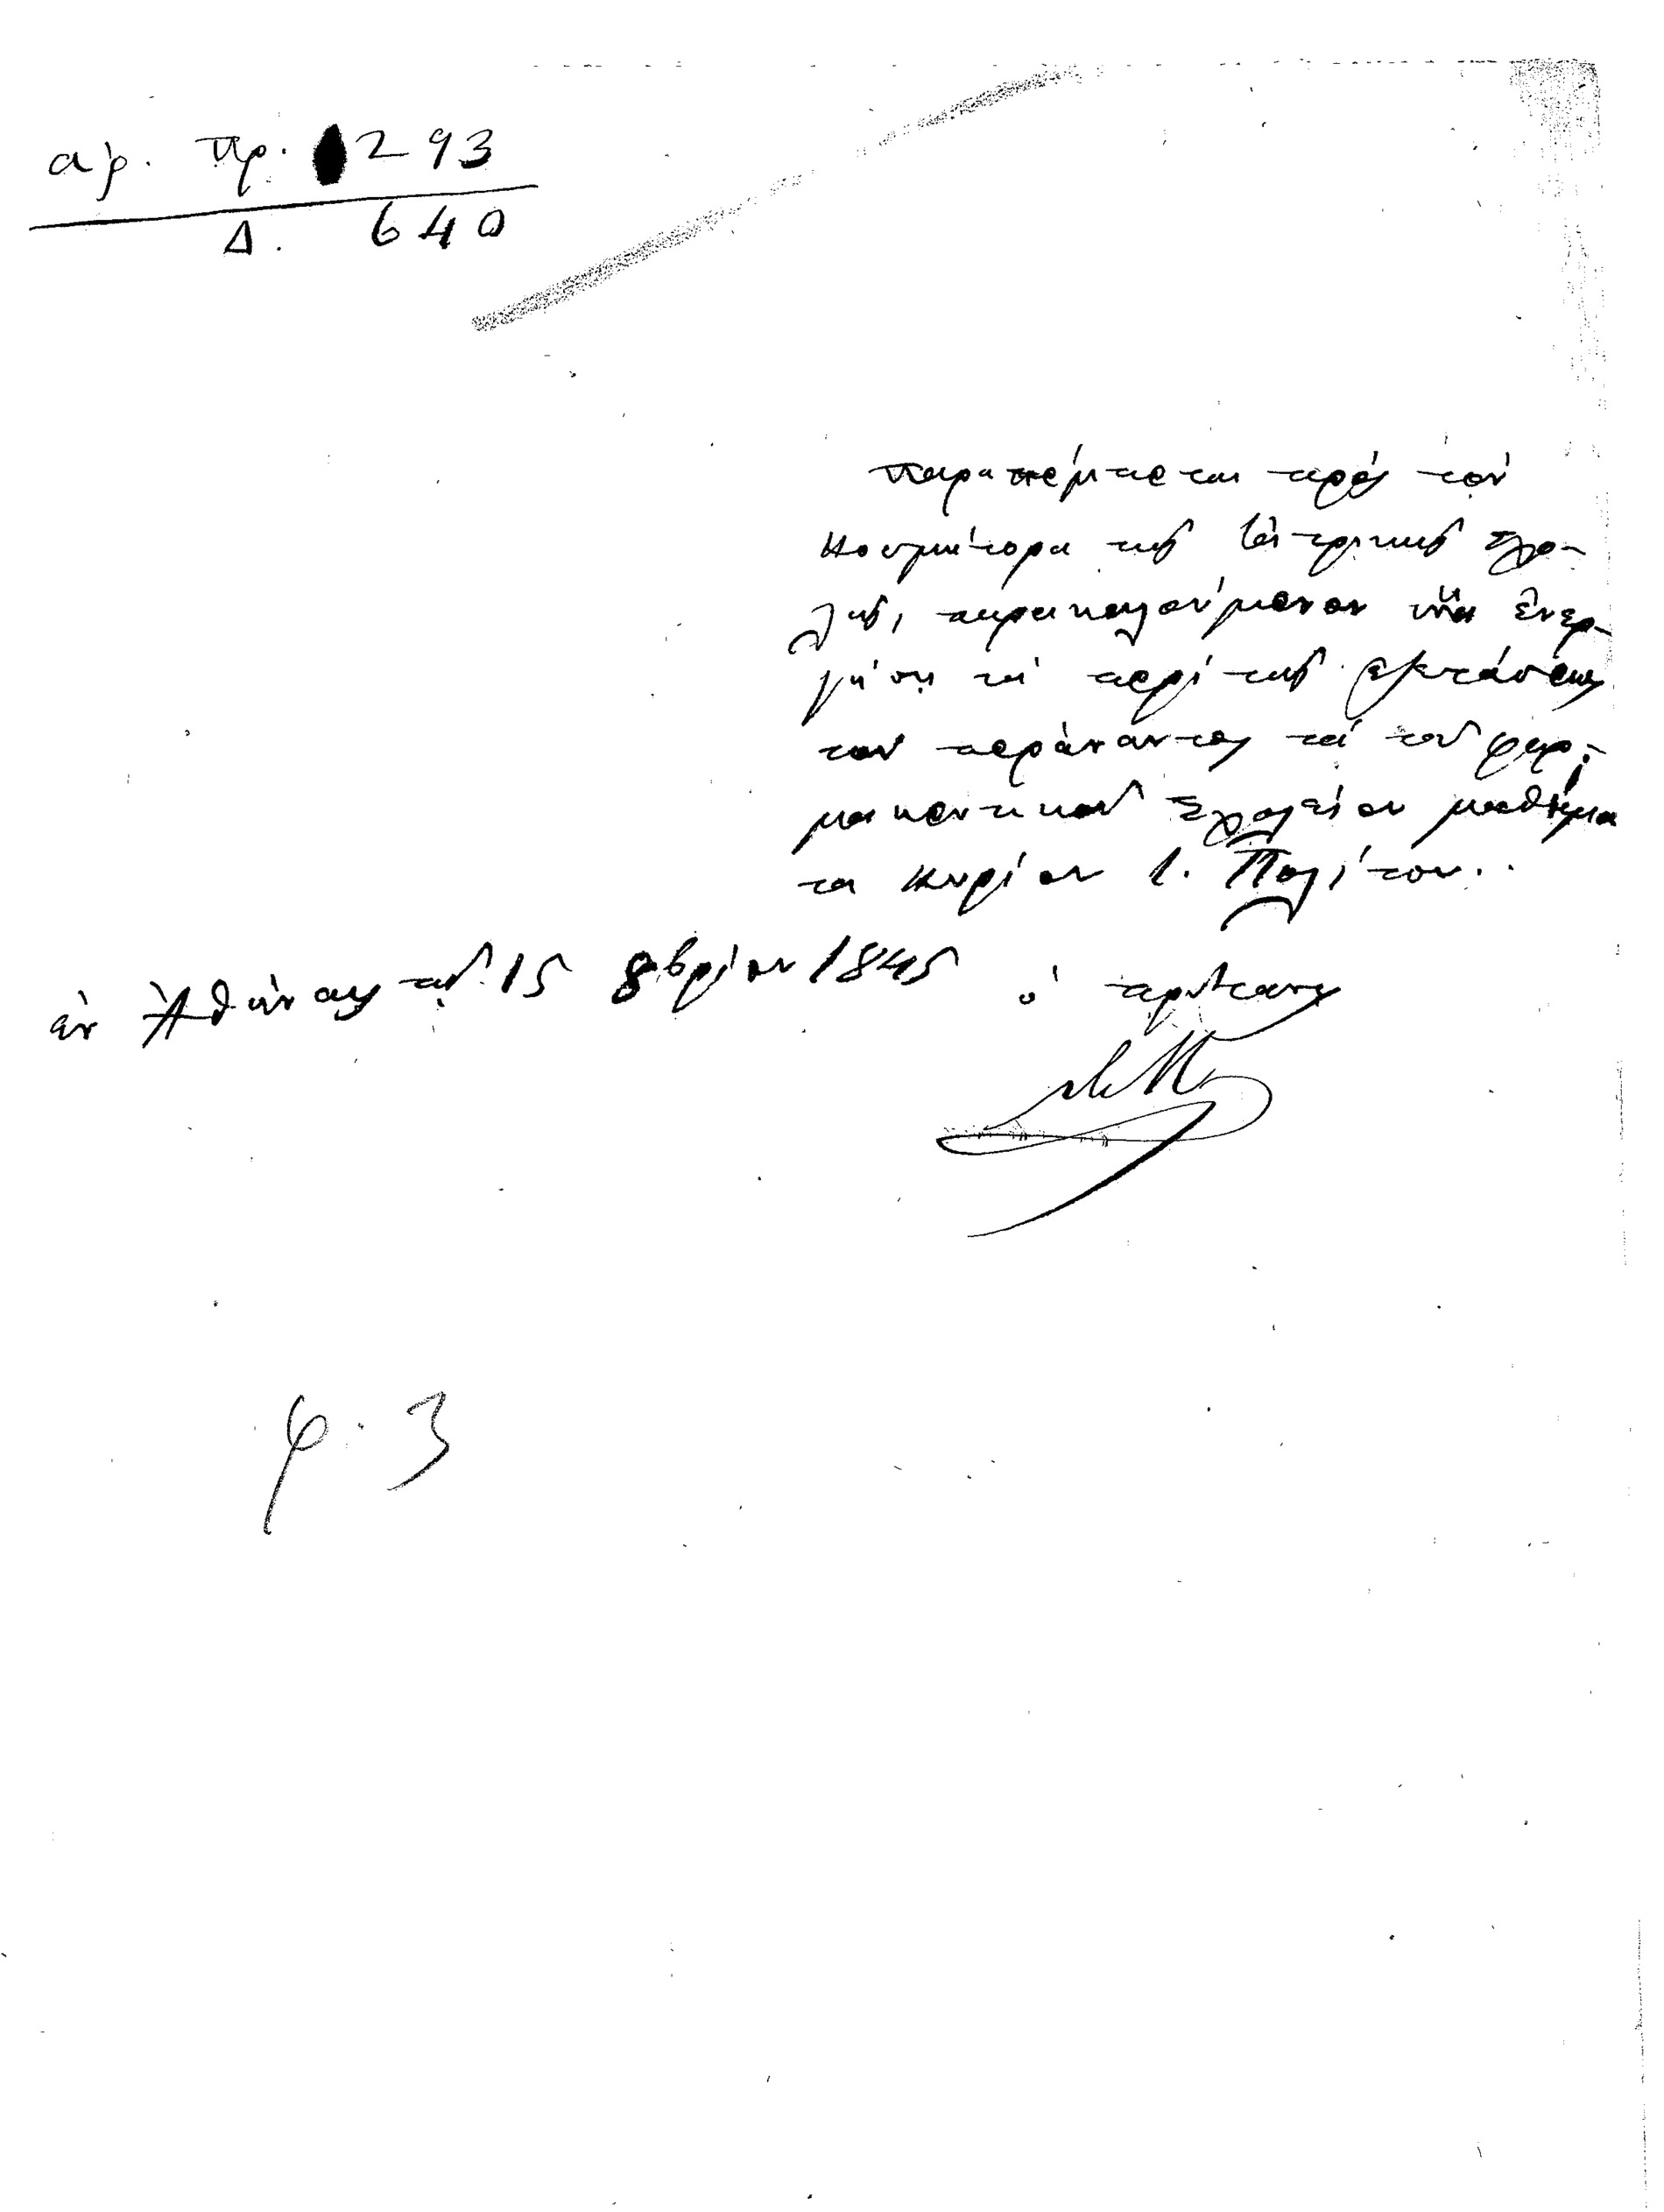 αρ. πρ. 293
Δ. 640
παραπέμπεται πρὸς τὸν
κοσμήτορα τῆς Ἰατρικῆς σχο-
λῆς, παρακαλούμενον ἵνα ἐνερ-
γήσῃ τὰ περὶ τῆς ἐξετάσεως
τοῦ περάναντος τὰ τοῦ φαρ-
μακευτικοῦ Σχολείου μαθήμα
τα κυρίου Ι. Πολίτου..
ἐν Ἀθήναις τῇ 15 8βρίου 1845
ὁ πρύτανις
φ. 3